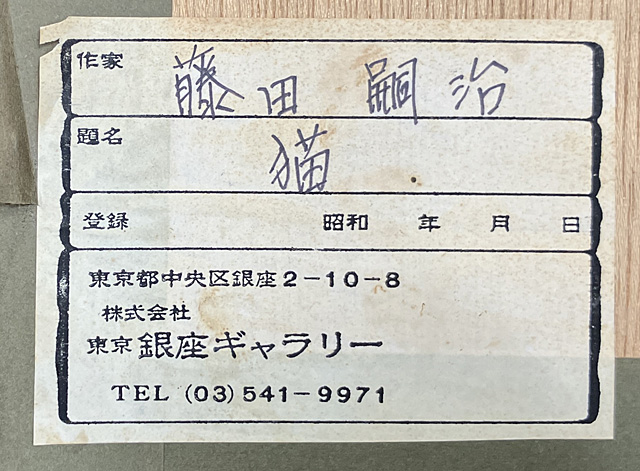 作家 藤田 嗣治
題名 猫
登録 昭和 年 月 日
東京都中央区銀座2-10-8
株式会社
東京 銀座ギャラリー
TEL (03)541-9971